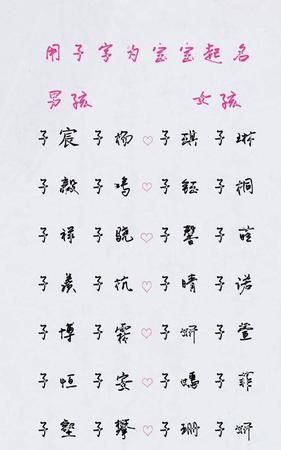 用子字为宝宝起名
男孩 女孩
子宸 子杨 ♡ 子琪 子琳
子毅 子鸣 ♡ 子钰 子桐
子禄 子骁 ♡ 子馨 子萱
子羡 子杭 ♡ 子晴 子诺
子博 子霖 ♡ 子妍 子萱
子恒 子安 ♡ 子嫣 子菲
子墅 子攀 ♡ 子珊 子妍